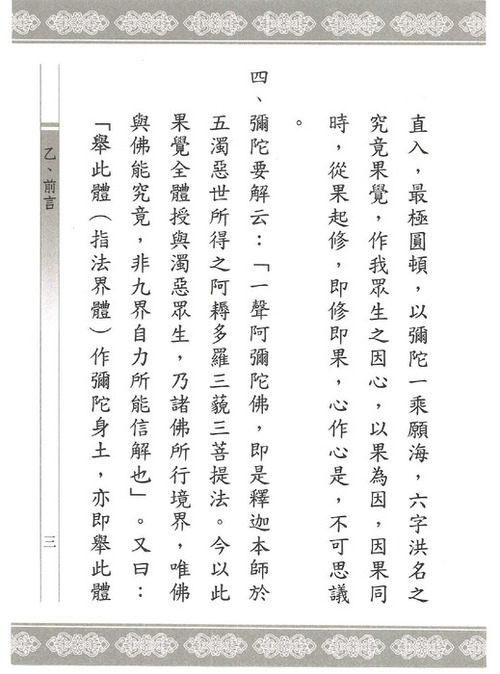 直入，最極圓頓，以彌陀一乘願海，六字洪名之
究竟果覺，作我眾生之因心，以果為因，因果同
時，從果起修，即修即果，心作心是，不可思議
。
四、彌陀要解云：「一聲阿彌陀佛，即是釋迦本師於
五濁惡世所得之阿耨多羅三藐三菩提法。今以此
果覺全體授與濁惡眾生，乃諸佛所行境界，唯佛
與佛能究竟，非九界自力所能信解也」。又曰：
「舉此體（指法界體）作彌陀身土，亦即舉此體
乙、前言
三